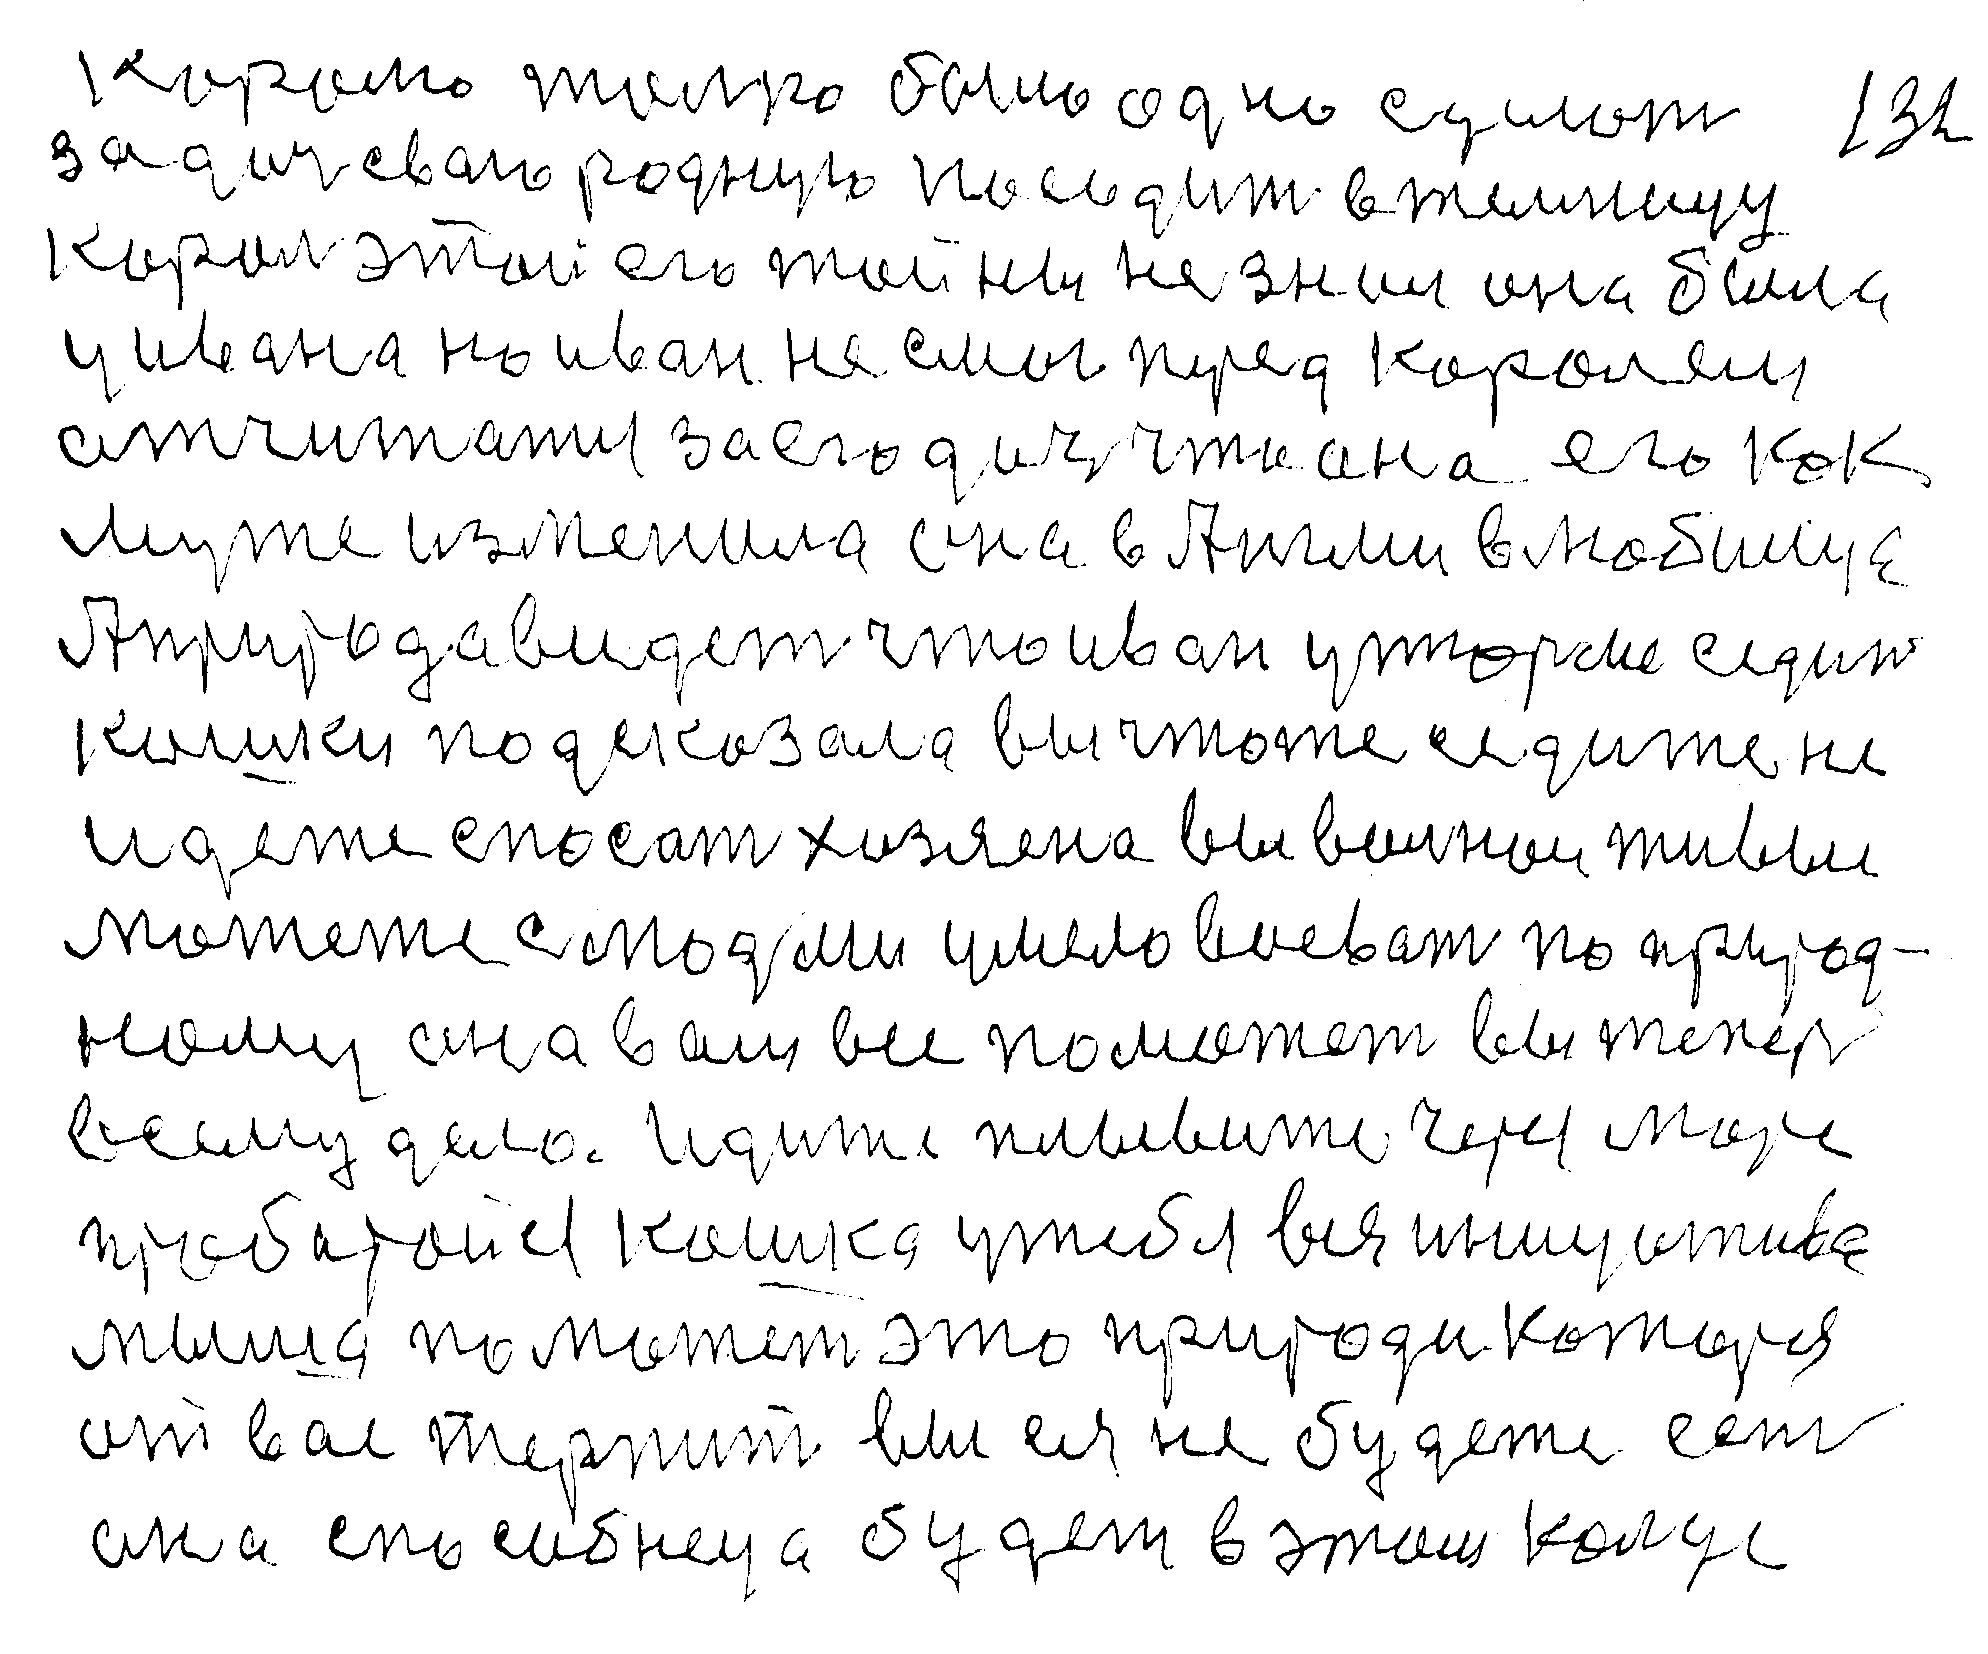 королю толко было одно сумот 132
за дочсваю родную посодит в темницу
корол этой его тойны не знол она была
у ивана но иван не смог пред королем
отчитатц за его доч что она его кок
муже изменила она в Англи влюбишуе
А природа видет что иван у тюрме седит
кошки подсказала вы чтоже седите не
идете спосат хозяена вы волной живы
можете с людми умело воеват по природ-
ному она вам все поможет вы тепер
всему дело. Идите плывите черз море
пробаройсц кошка ужебл вся иницотива
мышя поможет это природи которя
от вас терпит вы ея не будете сет
она способнеца будет в этом колус